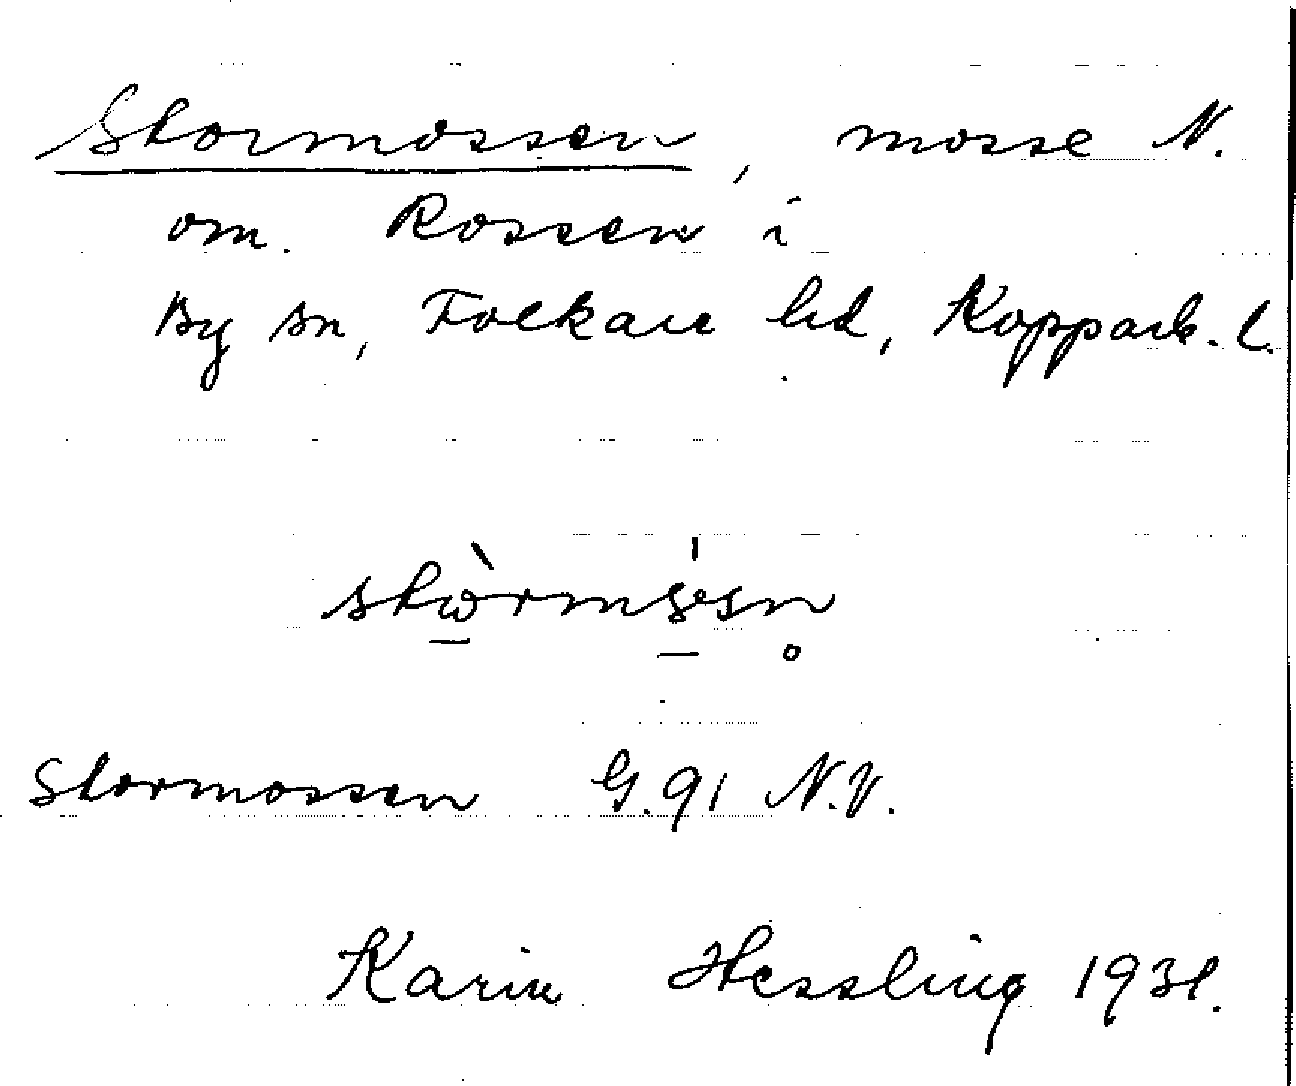 Stormossen, mosse N.
om. Rossen i
By sn, Folkare hd, Kopparb. l.
Stormossen G.91 N.V.
Karin Hessling 1931.